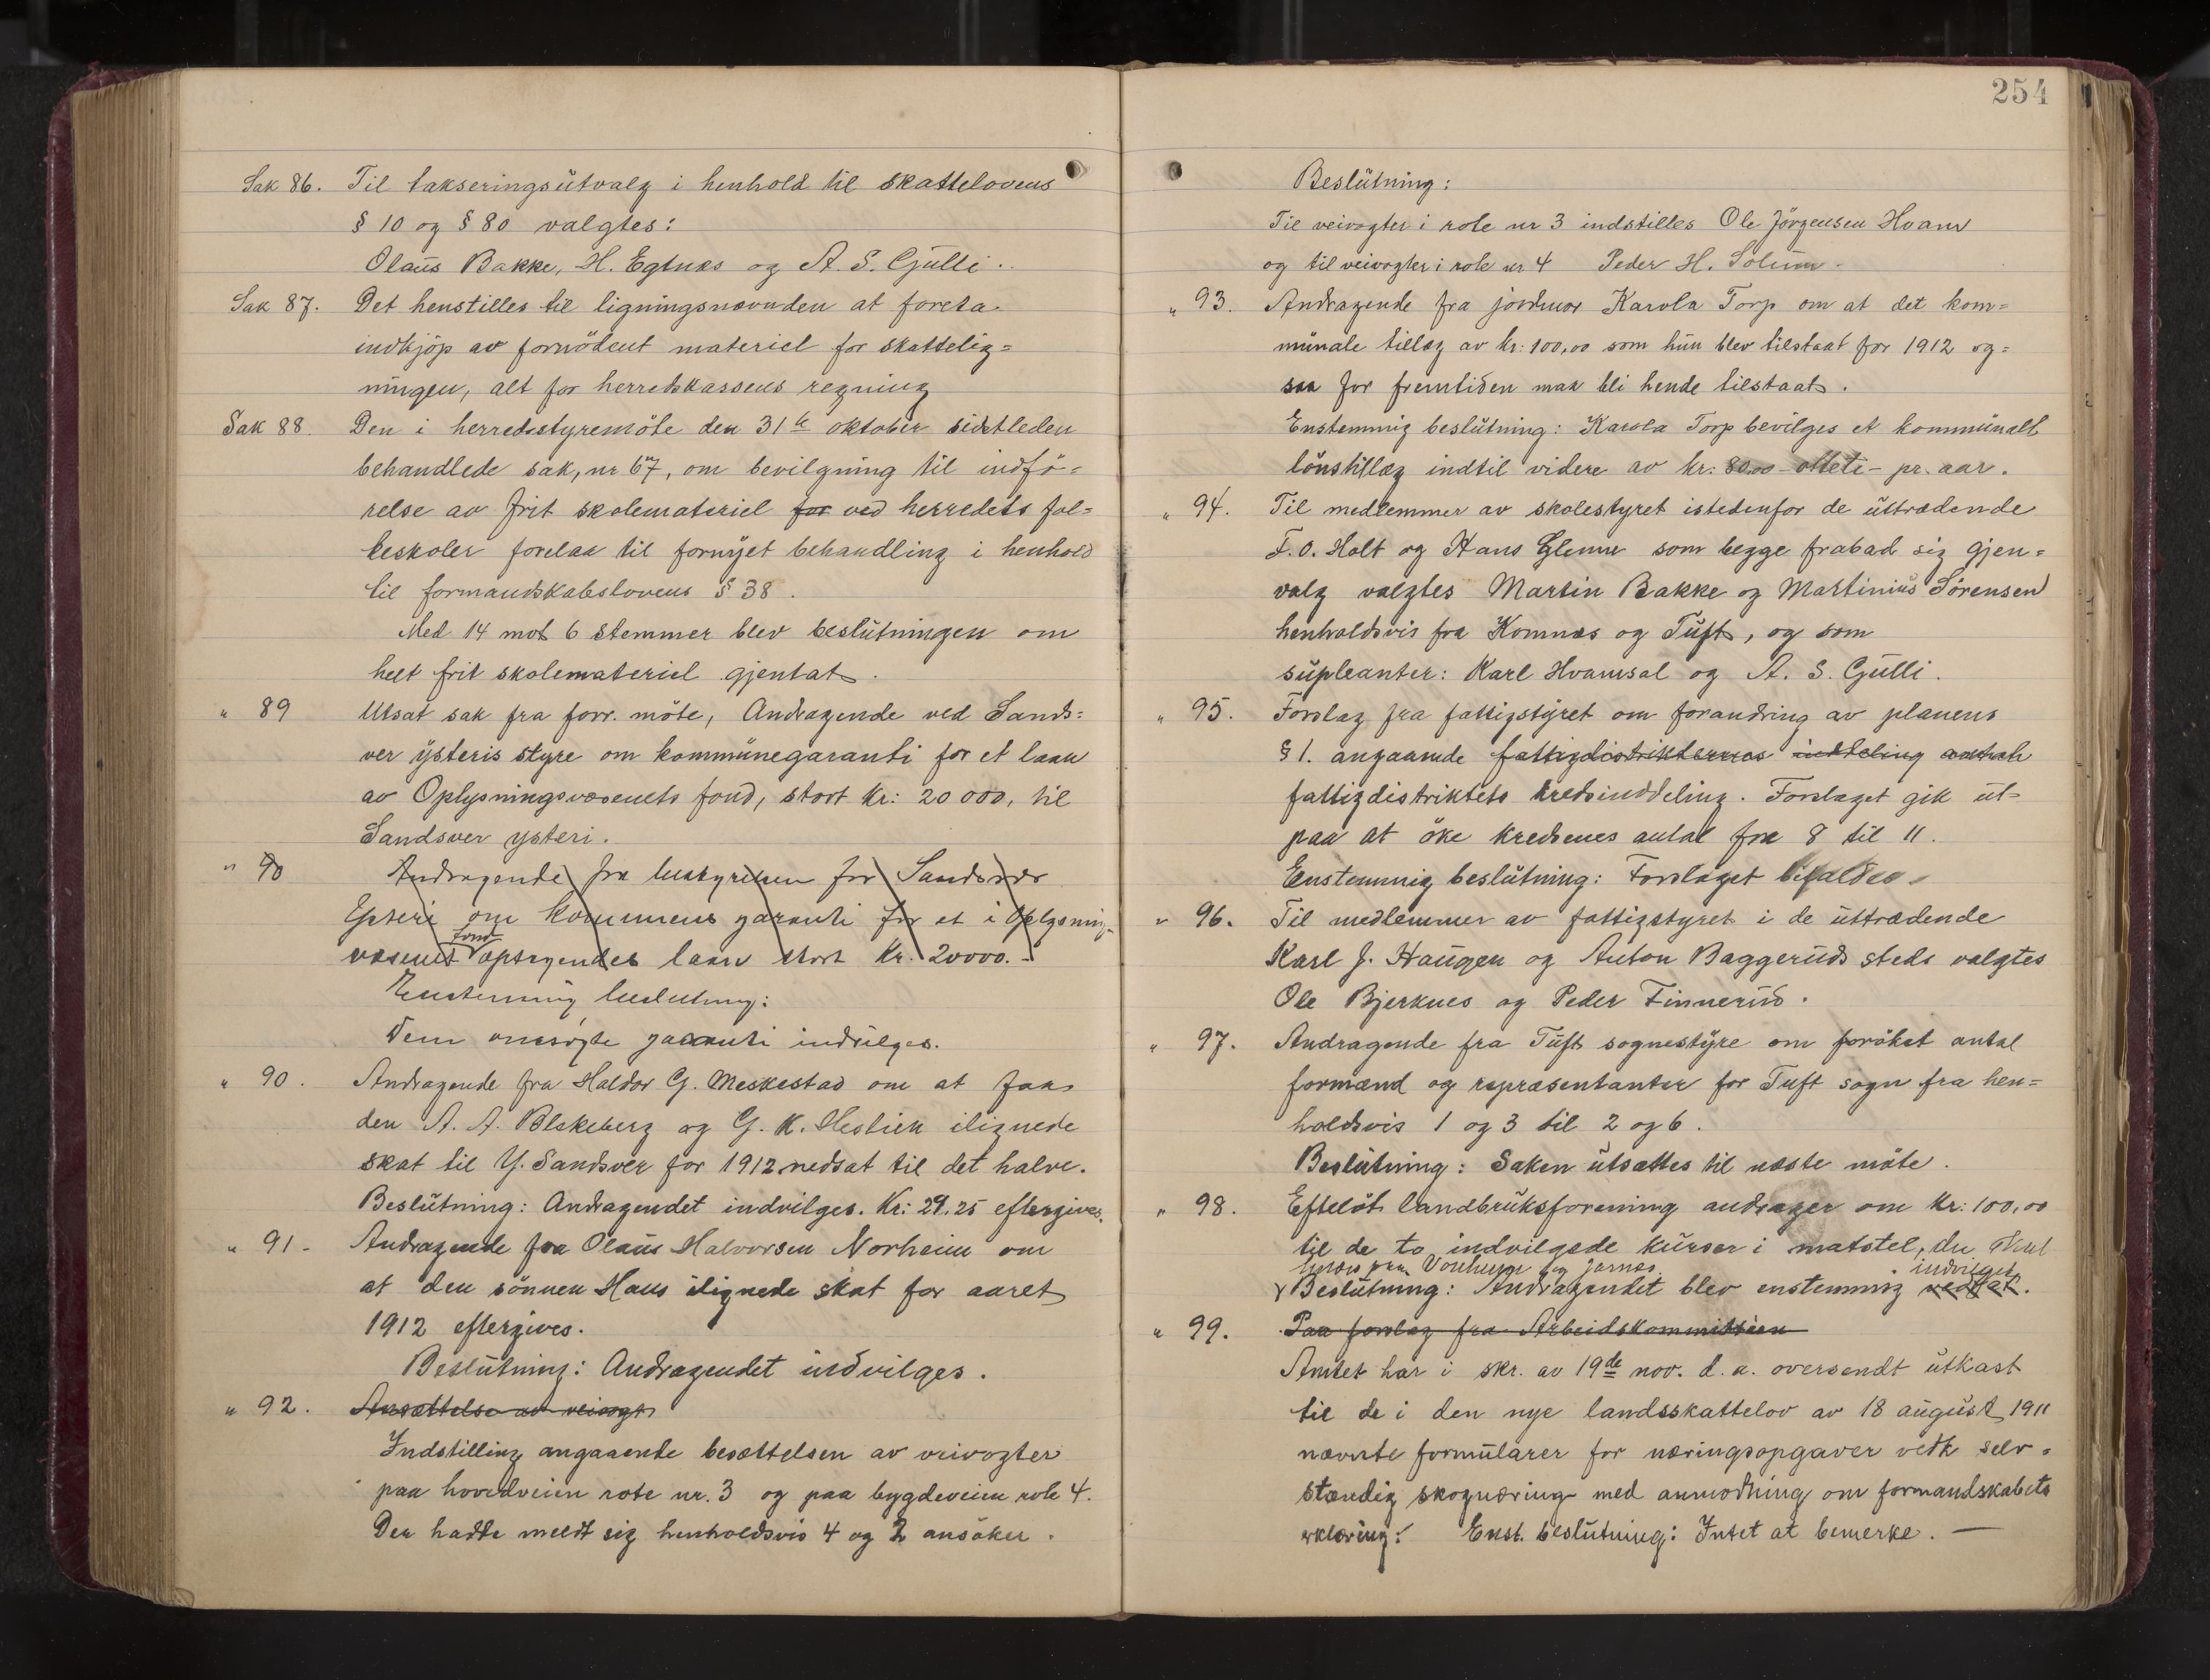 Sak 86. Til takseringsutvalg i henhold til skattelovens
§ 10 og § 80 valgtes:
Olaus Bakke, H. Egtnæs og A. S. Gulli.
Sak 87. Det henstilles til ligningsnævnden at foreta
indkjøp av fornödent materiel for skattelig=
ningen, alt for herredskassens regning
Sak 88. Den i herredsstyremöte den 31te oktober sidstleden
behandlede sak, nr 67, om bevilgning til indfö=
relse av frit skolemateriel for ved herredets fol=
keskoler forelaa til fornyet behandling i henhold
til formandskabslovens § 38.
Med 14 mot 6 stemmer blev beslutningen om
helt frit skolemateriel gjentat.
" 89 Utsat sak fra forr. möte, Andragende ved Sands=
ver ysteris styre om kommunegaranti for et laan
av Oplysningsvæsenets fond, stort kr: 20 000, til
Sandsver ysteri.
" 90 Andragende fra bestyrelsen for Sandsvær
Ysteri om kommunens garanti for et i Oplysnings-
væsenets fond optagendes laan stort Kr. 20000.-
Enstemmig beslutning:
Den ansøgte garanti indvilges.
" 90. Andragende fra Haldor G. Meskestad om at faa
den A. A. Blekeberg og G. K. Heslien ilignede
skat til Y. Sandsver for 1912 nedsat til det halve.
Beslutning: Andragendet indvilges. Kr: 29.25 eftergives.
" 91- Andragende fra Olaus Halvorsen Norheim om
at den sönnen Hans ilignede skat for aaret
1912 eftergives.
Beslutning: Andragendet indvilges.
" 92. Ansættelse av veivogt
Indstilling angaaende besættelsen av veivogter
paa hovedveien rote nr. 3 og paa bygdeveien rote 4.
Der hadde meldt sig henholdsvis 4 og 2 ansöker.
254
Beslutning:
Til veivogter i rote nr 3 indstilles Ole Jörgensen Hvam
og til veivogter i rote nr 4 Peder H. Solum.
" 93. Andragende fra jordmor Karola Torp om at det kom=
munale tillæg av kr: 100,00 som hun blev tilstaat for 1912 og=
saa for fremtiden maa bli hende tilstaat.
Enstemmig beslutning: Karola Torp bevilges et kommunalt
lönstillæg indtil videre av kr: 80.00 - otteti - pr. aar.
" 94. Til medlemmer av skolestyret istedenfor de uttrædende
F. O. Holt og Hans Glenne som begge frabad sig gjen=
valg valgtes Martin Bakke og Martinius Sörensen
henholdsvis fra Komnæs og Tuft, og som
supleanter: Karl Hvamsal og A. S. Gulli.
" 95. Forslag fra fattigstyret om forandring av planens
§ 1. angaaende fattigdistrikternes inddeling antal
fattigdistriktets kredsinddeling. Forslaget gik ut=
paa at öke kredsenes antal fra 8 til 11.
Enstemmig beslutning: Forslaget bifaldes.
" 96. Til medlemmer av fattigstyret i de uttrædende
Karl J. Haugen og Anton Baggeruds steds valgtes
Ole Bjerknes og Peder Finnerud.
" 97. Andragende fra Tuft sognestyre om forøket antal
formænd og repræsentanter for Tuft sogn fra hen=
holdsvis 1 og 3 til 2 og 6.
Beslutning: Saken utsættes til næste möte.
" 98. Efteløt landbruksforening andrager om kr: 100,00
til de to indvilgede kurser i matstel, du skal
og Jarnæs. indvilget
Beslutning: Andragendet blev enstemmig vedtat.
" 99. Paa forslag fra Arbeidskommissionen
Amtet har i skr. av 19de nov. d. a. oversendt utkast
til de i den nye landsskattelov av 18 august 1911
nævnte formularer for næringsopgaver vedk selv=
stændig skognæring med anmodning om formandskabets
erklæring. Enst. beslutning: Intet at bemerke. —